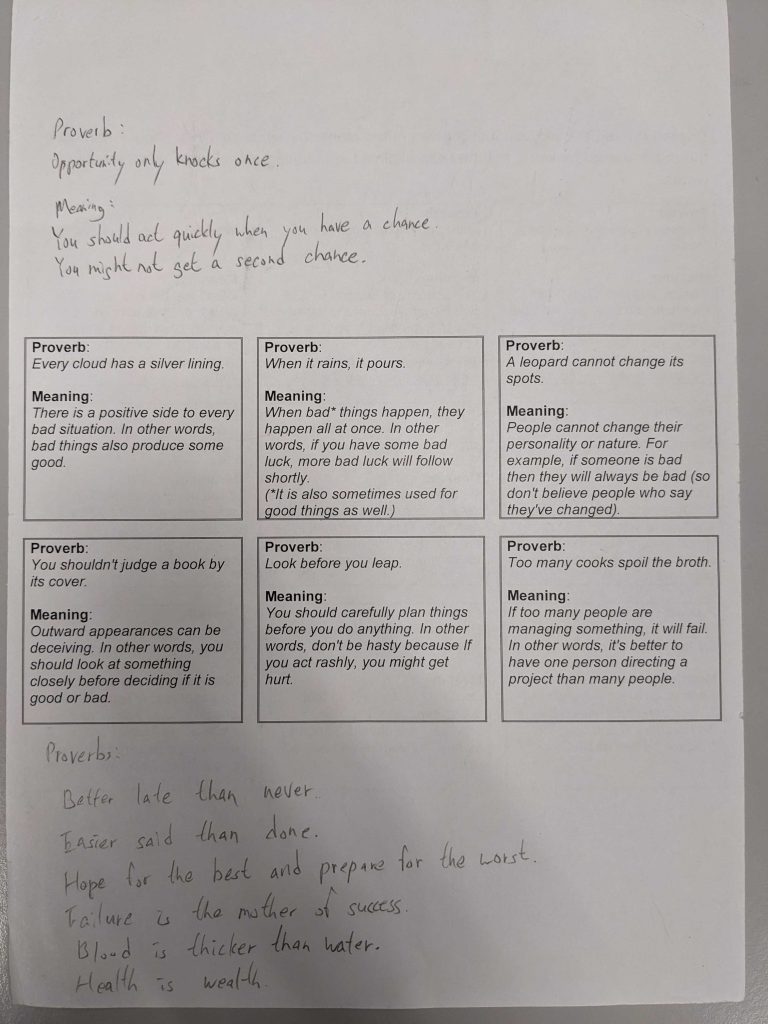 Proverb:
Opportunity only knocks once.
Meaning:
You should act quickly when you have a chance.
You might not get a second chance.
Proverb:
Every cloud has a silver lining.
Meaning:
There is a positive side to every
bad situation. In other words,
bad things also produce some
good.
Proverb:
When it rains, it pours.
Meaning:
When bad* things happen, they
happen all at once. In other
words, if you have some bad
luck, more bad luck will follow
shortly.
(*It is also sometimes used for
good things as well.)
Proverb:
A leopard cannot change its
spots.
Meaning:
People cannot change their
personality or nature. For
example, if someone is bad
then they will always be bad (so
don't believe people who say
they've changed).
Proverb:
You shouldn't judge a book by
its cover.
Meaning:
Outward appearances can be
deceiving. In other words, you
should look at something
closely before deciding if it is
good or bad.
Proverb:
Look before you leap.
Meaning:
You should carefully plan things
before you do anything. In other
words, don't be hasty because If
you act rashly, you might get
hurt.
Proverb:
Too many cooks spoil the broth.
Meaning:
If too many people are
managing something, it will fail.
In other words, it's better to
have one person directing a
project than many people.
Proverbs:
Better late than never.
Easier said than done.
Hope for the best and prepare for the worst.
Failure is the mother of success.
Blood is thicker than water.
Health is wealth.